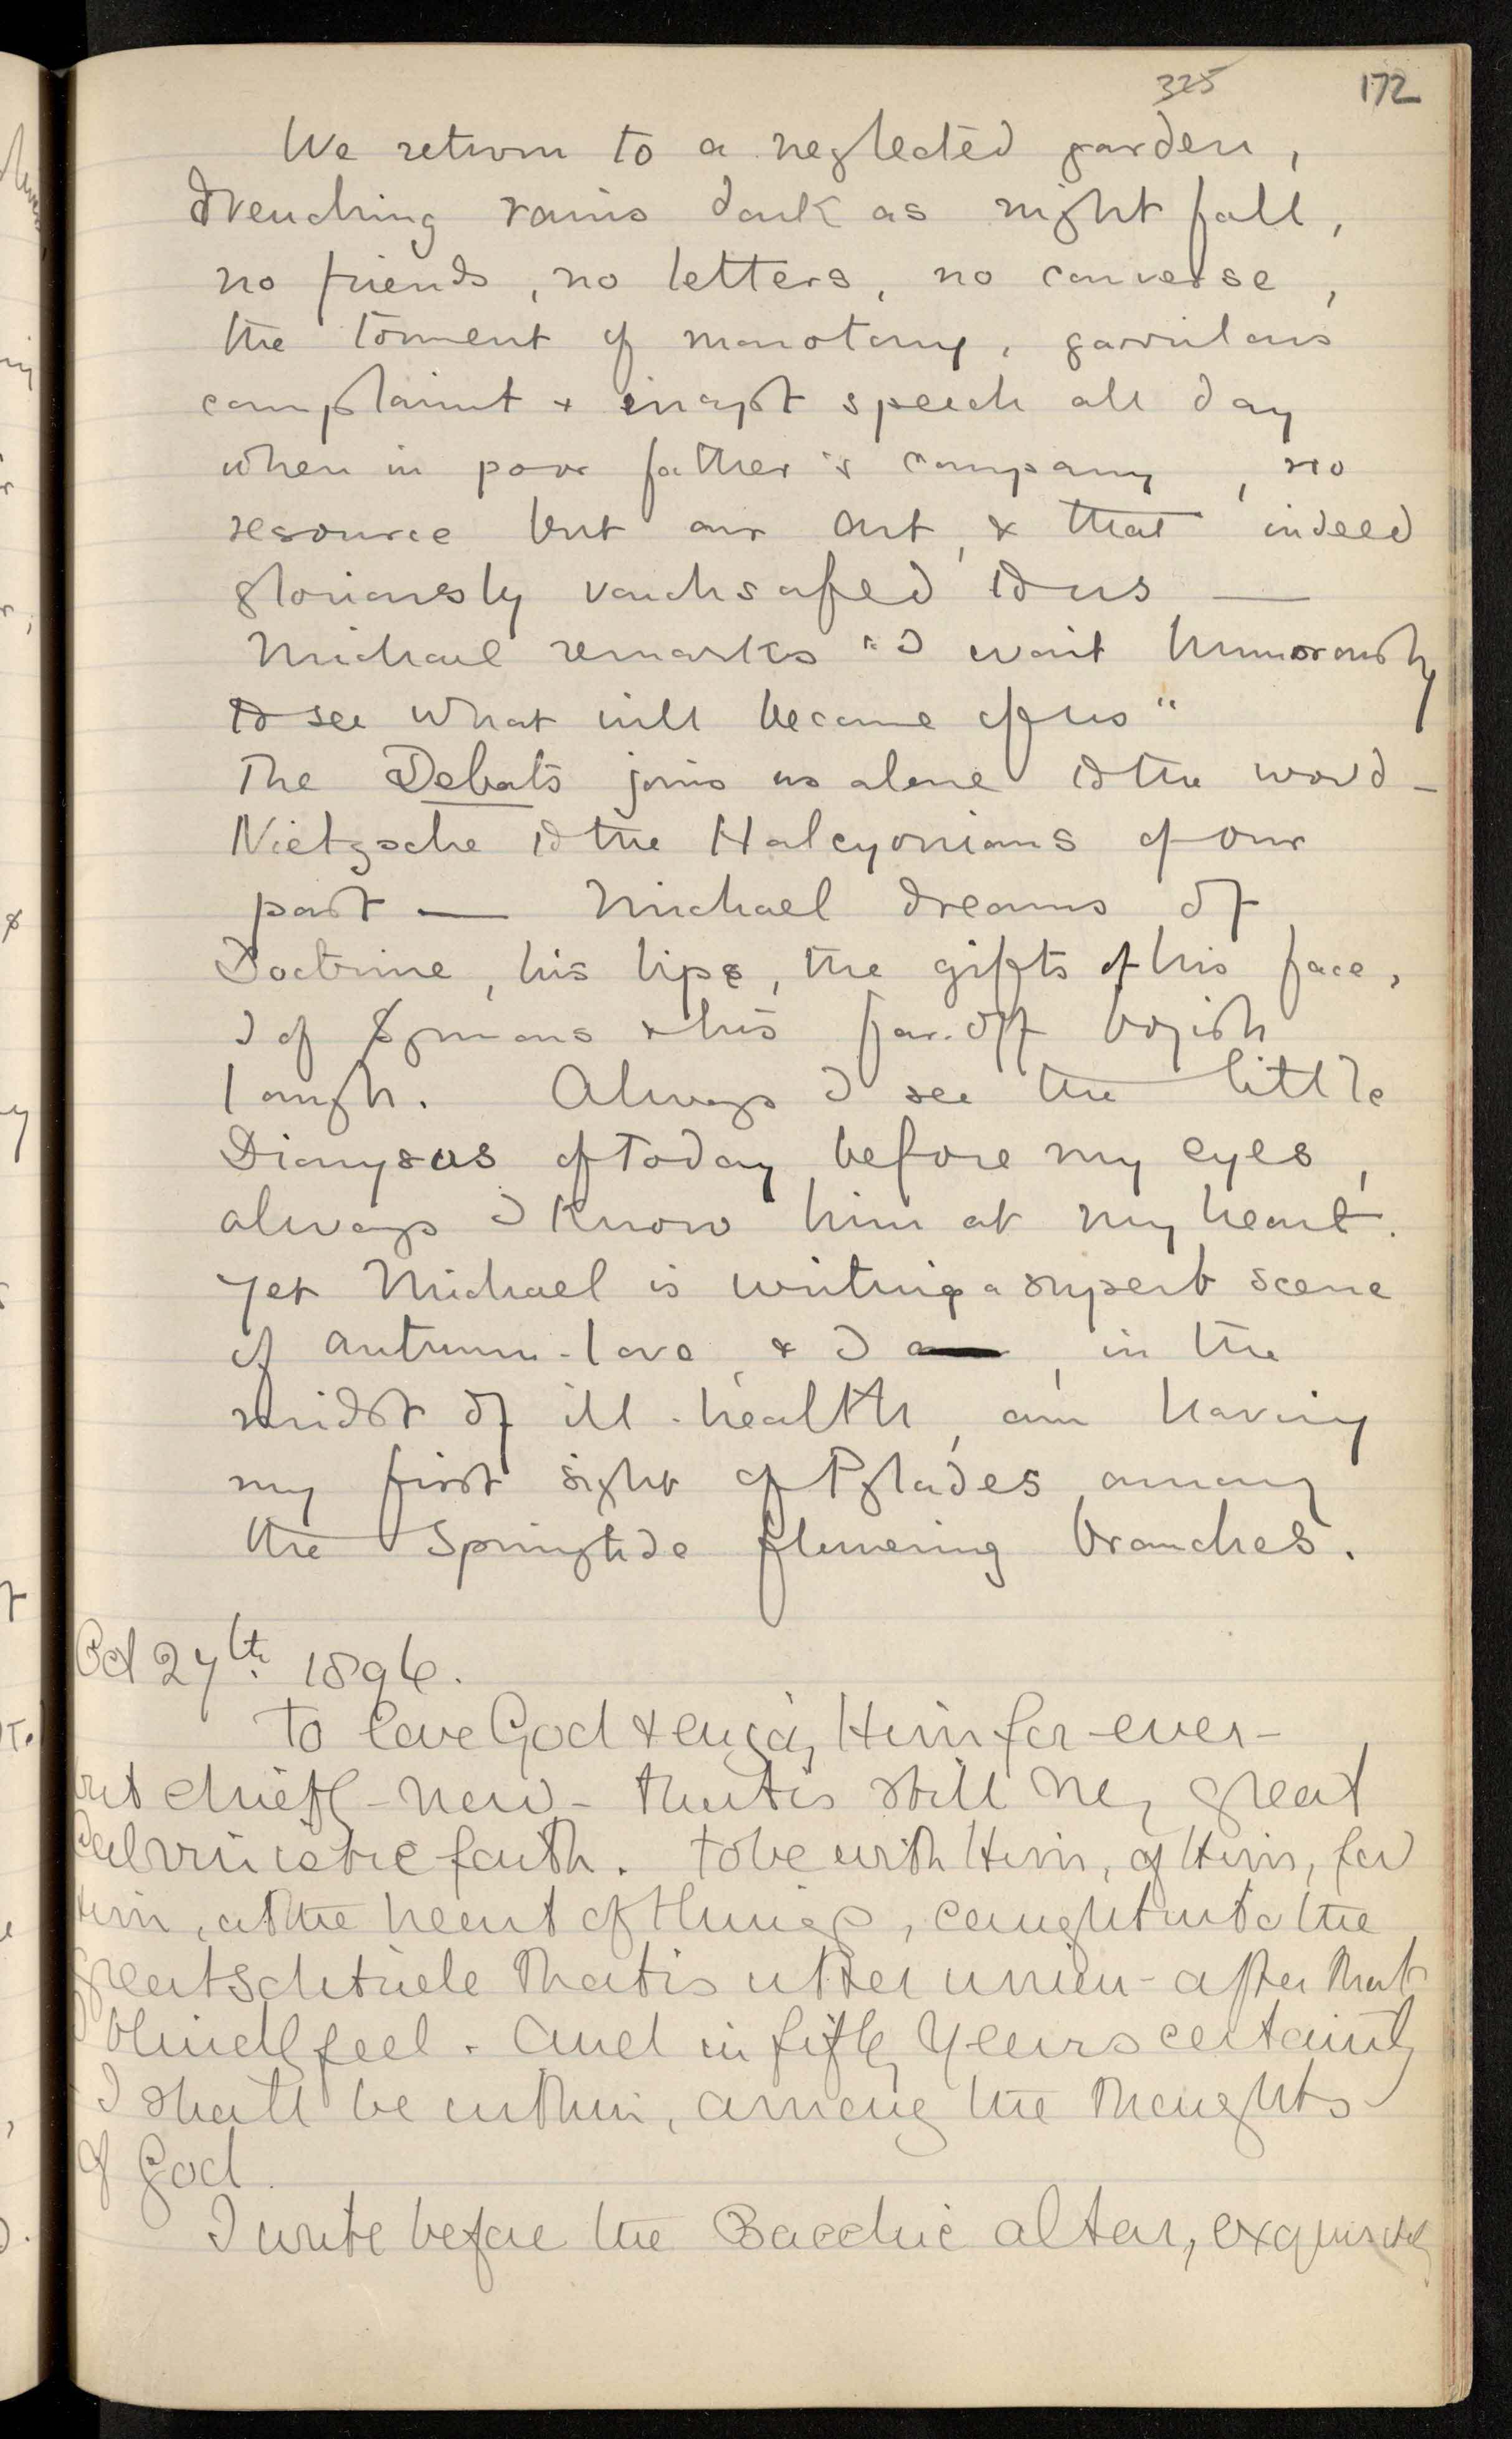 325 172
We return to a neglected garden,
drenching rains dark as night fall,
no friends, no letters, no converse,
the torment of monotony, garrulous
complaint & inapt speech all day
when in poor father's company, no
resource but our art, & that indeed
gloriously vouchsafed to us —
Michael remarks "I wait humorously
to see what will become of us"
The Debats joins us alone to the world –
Nietzsche to the Halcyonians of our
past — Michael dreams of
Doctrine, his lips, the gifts of his face,
I of & his far-off boyish
laugh. Always I see the little
Dionysus of Today before my eyes,
always I know him at my heart.
Yet Michael is writing a superb scene
of autumn-love, & I, in the
midst of ill-health, am having
my first sight of Pylades among
the Springtide flowering branches.
Oct 27th. 1896.
To love God & enjoy Him for-ever –
but chiefly – now – that is still my great
Calvinistic faith. To be with Him, of Him, for
Him, at the heart of things, caught into the
great solitude that is utter union – after that
I blindly feel. And in fifty years certainly
I shall be within, among the thoughts
of God.
I write before the Bacchic altar, exquisitely